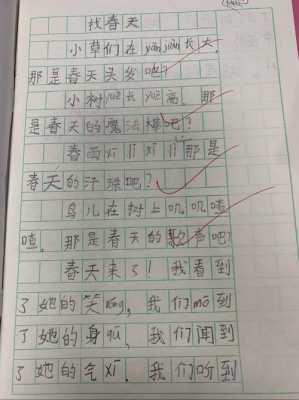 找春天
小草们在 yán jiān 长大，
那是春天头发吧？
小树 yuè 长 yuè 高。那
是春天的魔法棒吧？
春雨 xī lī xī lī 那是
春天的汗珠吧？
鸟儿在树上叽叽喳
喳。那是春天的歌声吧？
春天来了！我看到
了她的笑 róng，我们 mō 到
了她的身 qū，我们闻到
了她的气 xī，我们听到